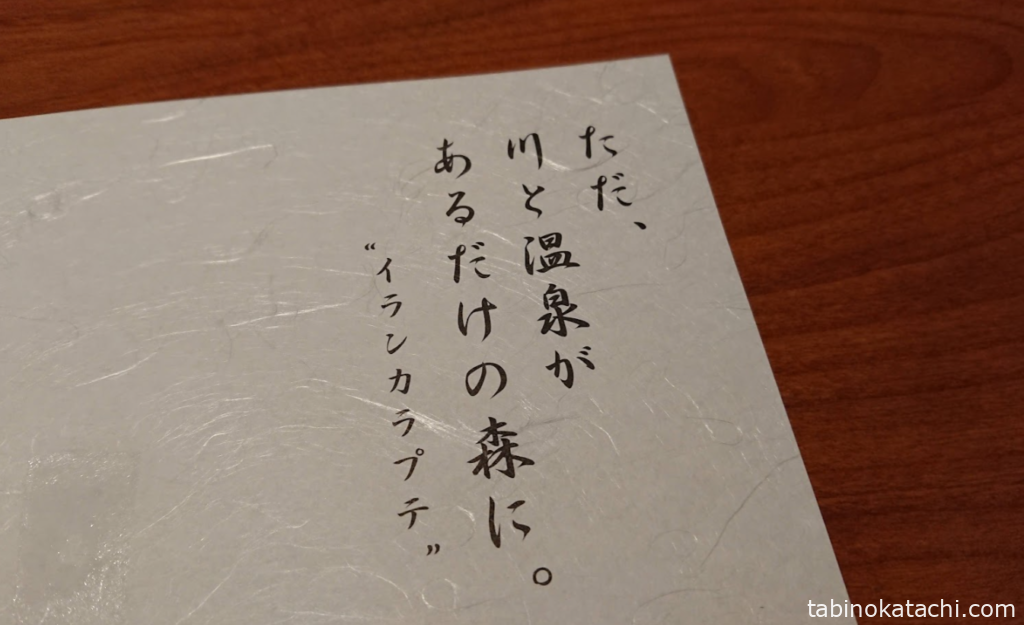 ただ、
川と温泉が
あるだけの森に。
“イランカラプテ”
tabinokatachi.com